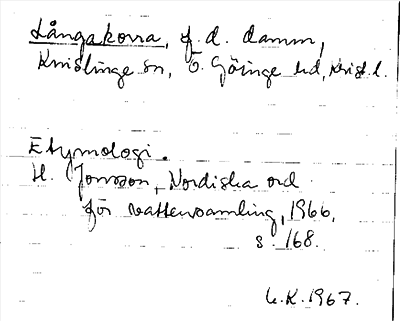 Långakorra, f.d. damm,
Knislinge sn, Ö. Göinge hd, Krist. l.
Etymologi.
H. Jonsson, Nordiska ord
för vattensamling, 1966,
s. 168.
L.K. 1967.